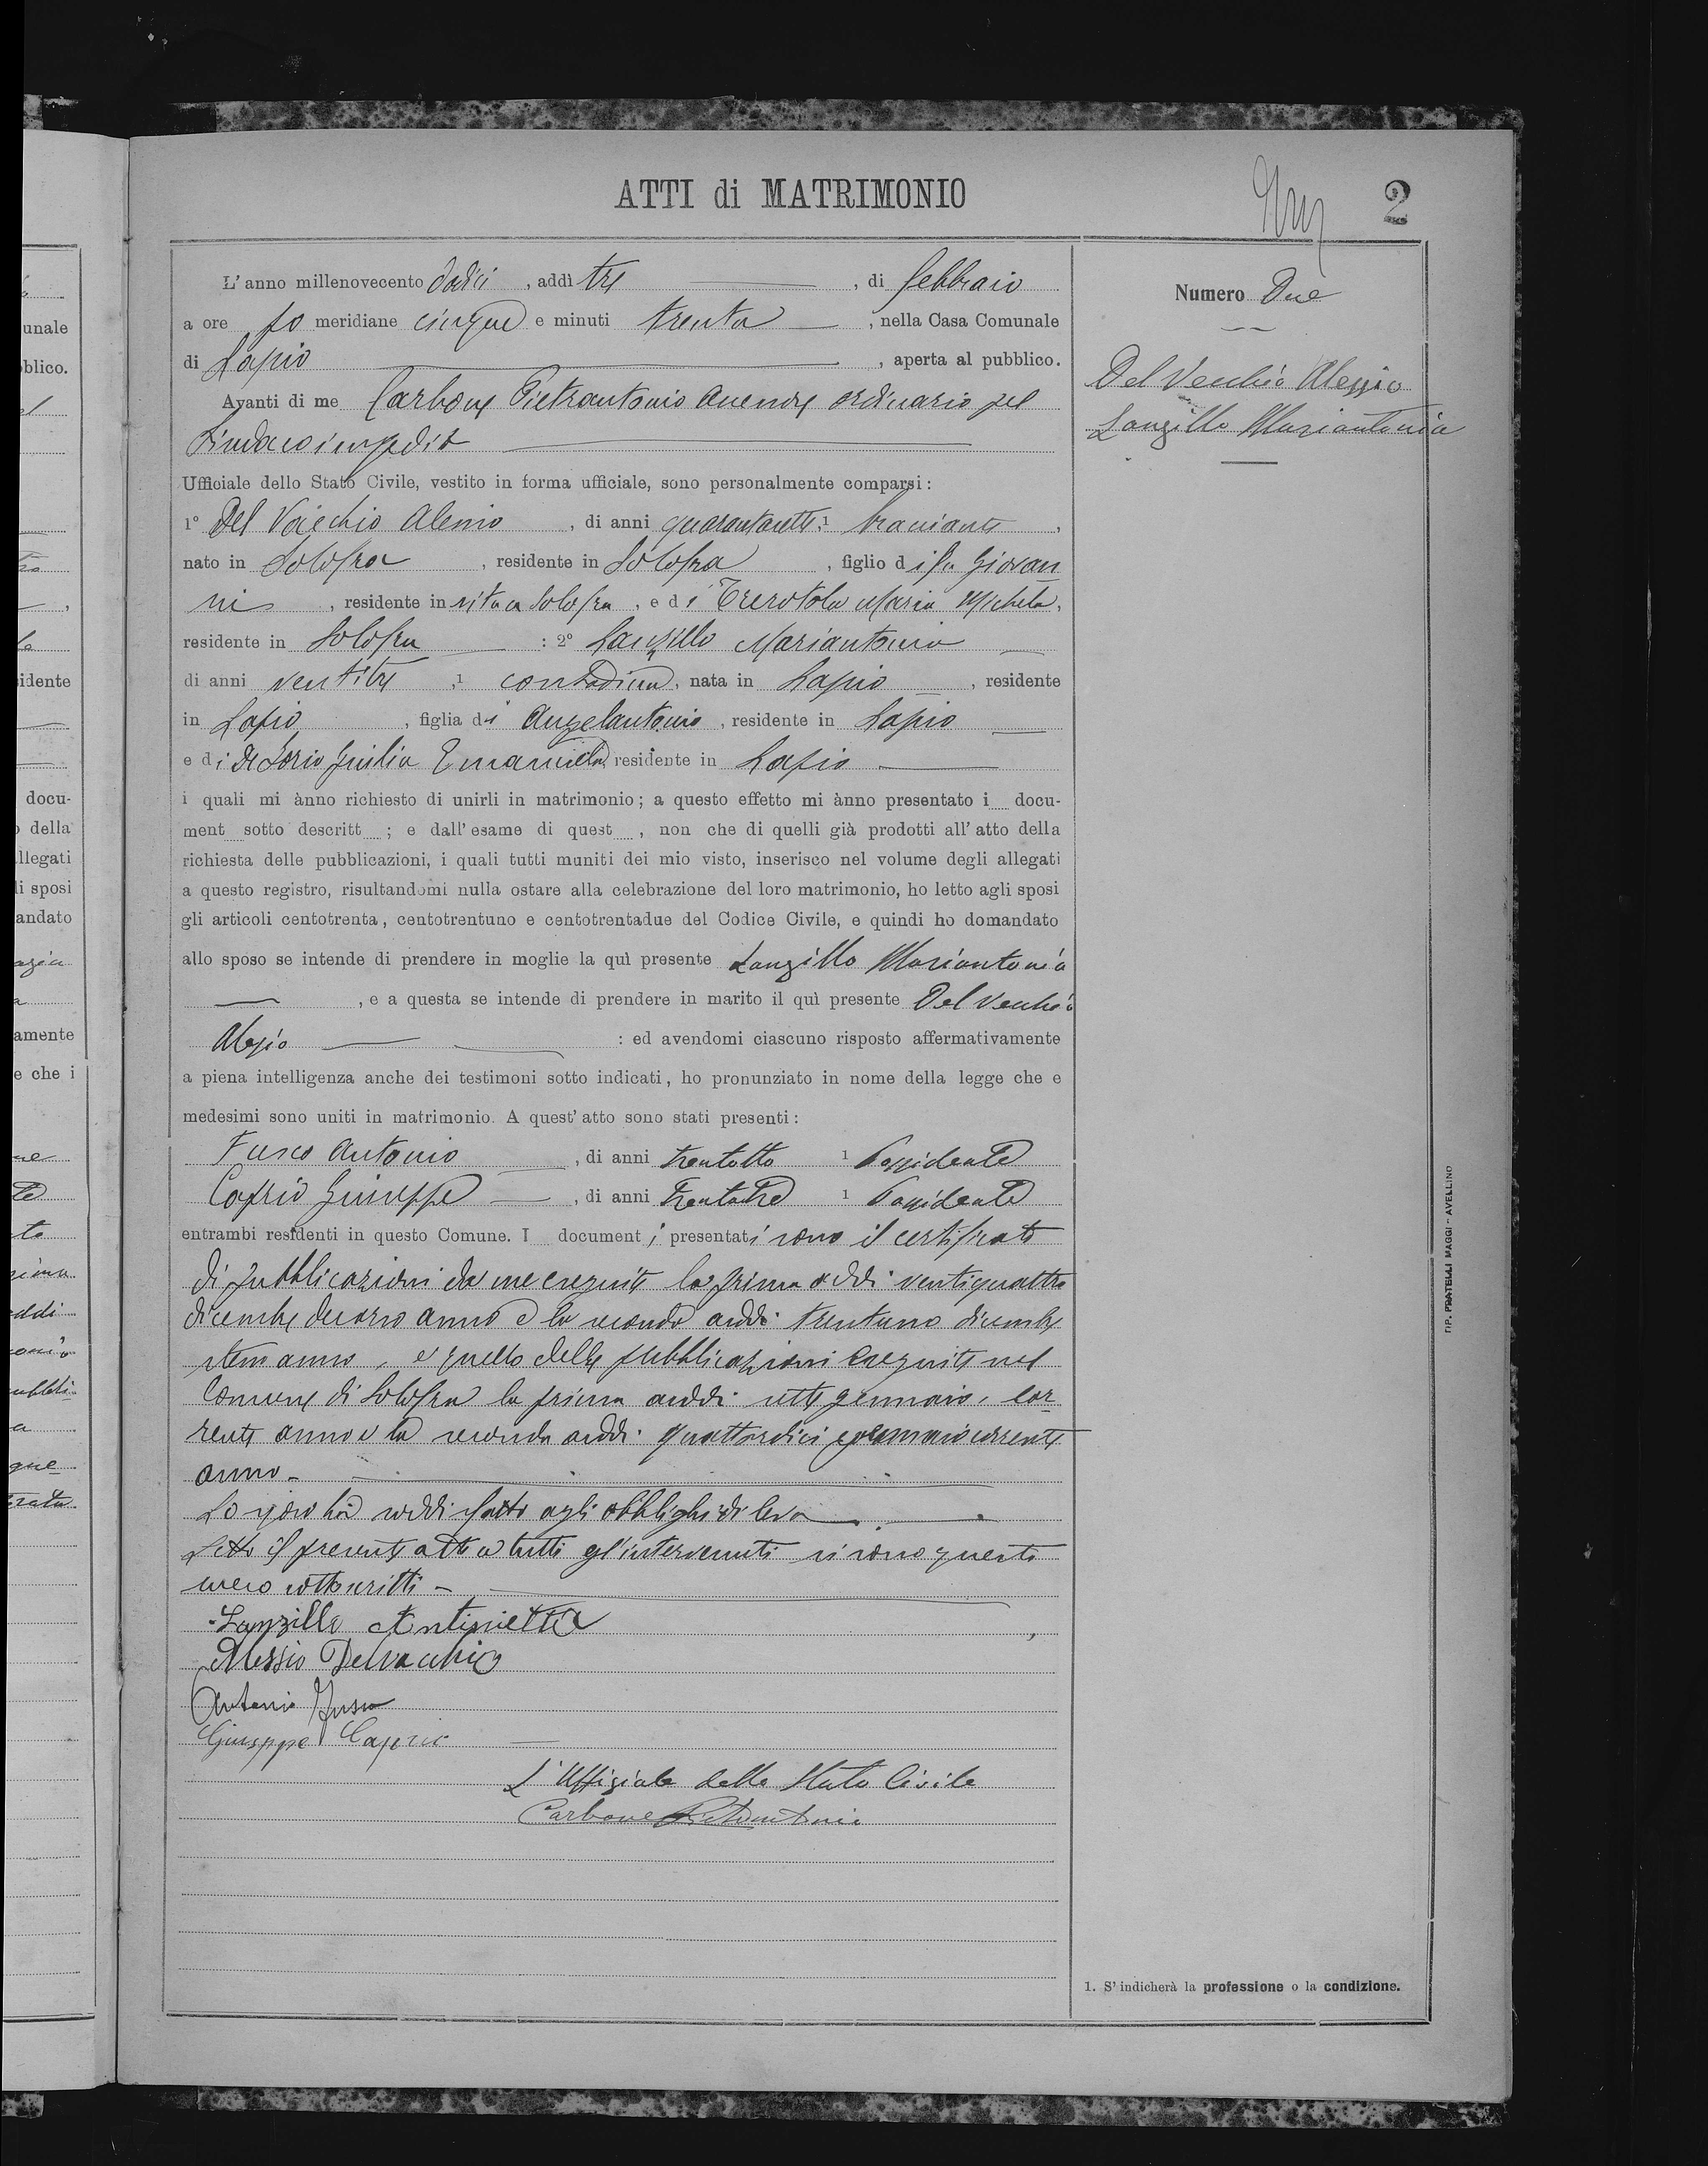 ATTI di MATRIMONIO
2
L'anno millenovecento dodici, addì tre, di febbraio
a ore po meridiane cinque e minuti trenta, nella Casa Comunale
di Lapio, aperta al pubblico.
Avanti di me Carbone Pietrantonio assessore ordinario pel
Sindaco impedito
Ufficiale dello Stato Civile, vestito in forma ufficiale, sono personalmente comparsi:
1° Del Vecchio Alessio, di anni quarantasette, 1 bracciante,
nato in Solofra, residente in Solofra, figlio di fu Giovan
ni, residente in vita a Solofra, e di Trerotola Maria Michela,
residente in Solofra : 2° Lanzillo Mariantonia
di anni ventitre, 1 contadina, nata in Lapio, residente
in Lapio, figlia di Angelantonio, residente in Lapio
e di De Iorio Giulia Emanuela, residente in Lapio
i quali mi ànno richiesto di unirli in matrimonio; a questo effetto mi ànno presentato i docu-
ment sotto descritt ; e dall'esame di quest , non che di quelli già prodotti all'atto della
richiesta delle pubblicazioni, i quali tutti muniti dei mio visto, inserisco nel volume degli allegati
a questo registro, risultandomi nulla ostare alla celebrazione del loro matrimonio, ho letto agli sposi
gli articoli centotrenta, centotrentuno e centotrentadue del Codice Civile, e quindi ho domandato
allo sposo se intende di prendere in moglie la quì presente Lanzillo Mariantonia
, e a questa se intende di prendere in marito il quì presente Del Vecchio
Alessio : ed avendomi ciascuno risposto affermativamente
a piena intelligenza anche dei testimoni sotto indicati, ho pronunziato in nome della legge che e
medesimi sono uniti in matrimonio. A quest'atto sono stati presenti:
Fusco Antonio, di anni trentotto 1 Possidente
Caprio Giuseppe, di anni trentatre 1 Possidente
entrambi residenti in questo Comune. I documenti presentati sono il certificato
di pubblicazioni da me eseguite la prima addì ventiquattro
dicembre decorso anno e la seconda addì trentuno dicembre
stesso anno, e quello delle pubblicazioni eseguite nel
Comune di Solofra la prima addì sette gennaio, cor-
rente anno e la seconda addì quattordici gennaio corrente
anno -
Lo sposo ha soddisfatto agli obblighi di leva
Letto il presente atto a tutti gl'intervenuti si sono questi
meco sottoscritti -
Lanzillo Antonietta
Alessio Delvecchio
Antonio Fusco
Giuseppe Caprio
L'Uffiziale dello Stato Civile
Carbone Pietrantonio
Numero Due
Del Vecchio Alessio
Lanzillo Mariantonia
1. S'indicherà la professione o la condizione.
TIP. FRATELLI MAGGI - AVELLINO
unale
blico.
idente
docu-
della
llegati
li sposi
andato
amente
e che i